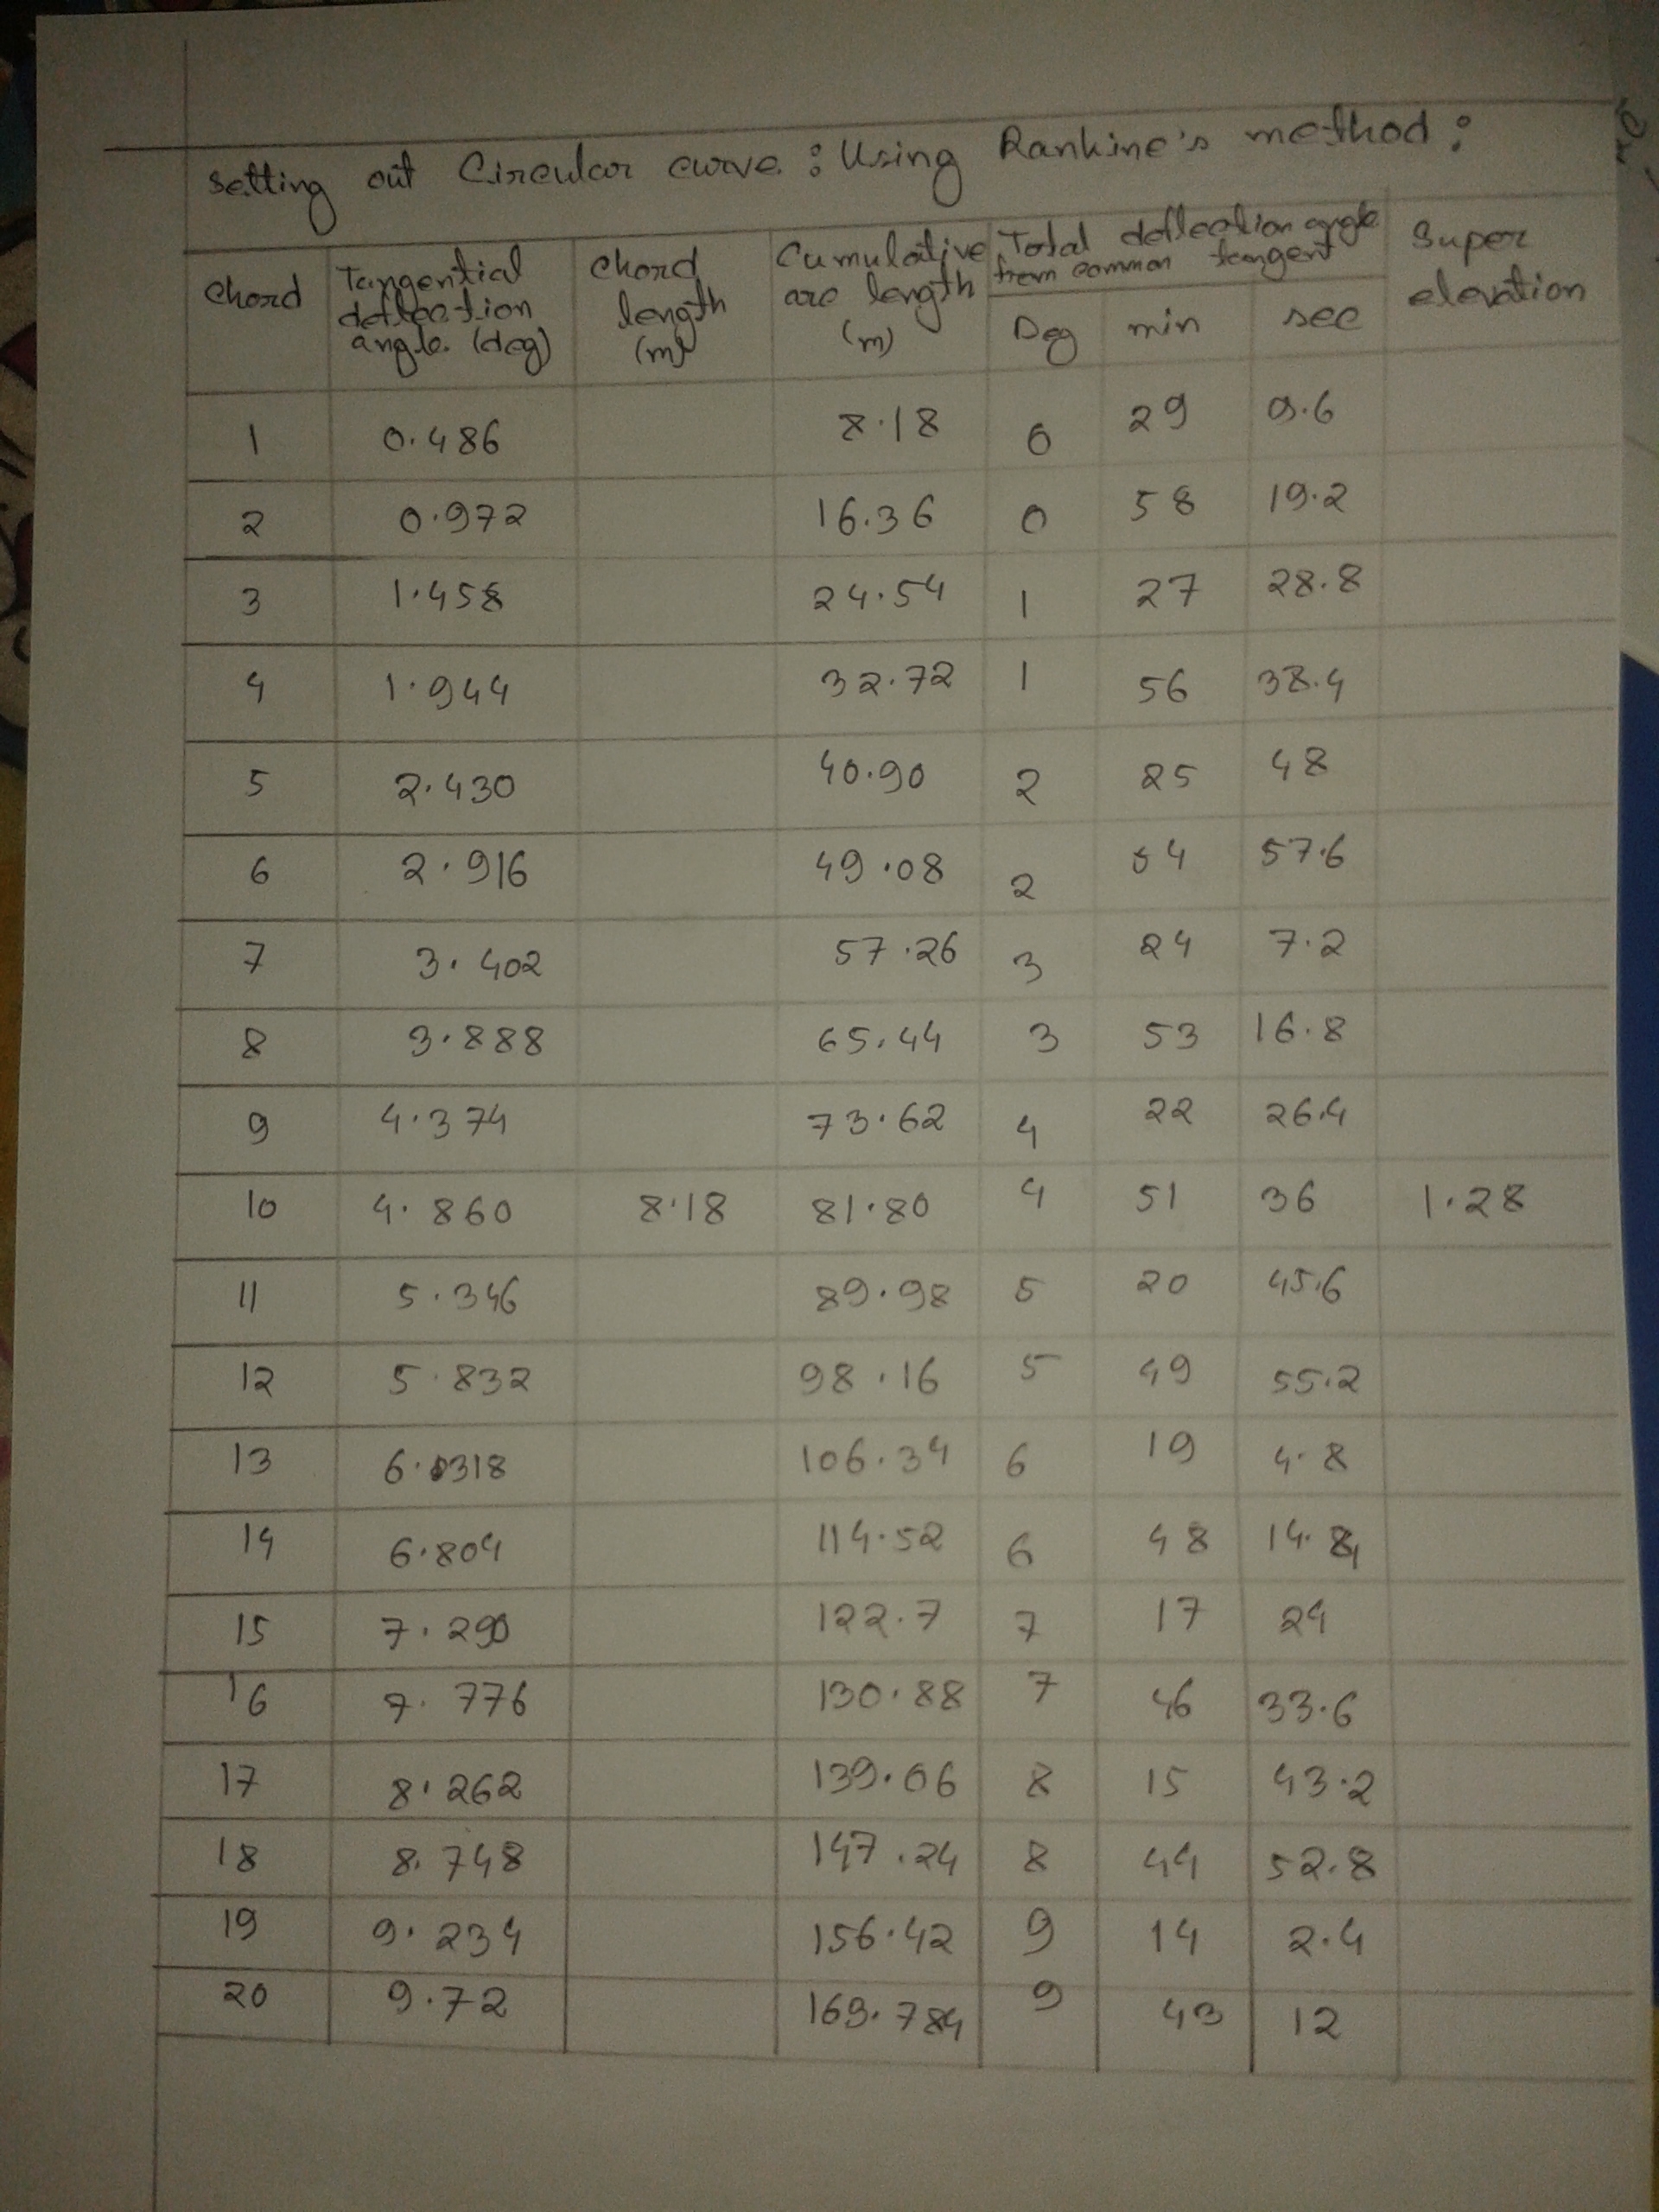 Setting out Circular curve : Using Rankine's method :
Chord Tangential deflection angle. (deg) Chord length (m) Cumulative arc length (m) Total deflection angle from common tangent Super elevation
Deg min sec
1 0.486 8.18 0 29 9.6
2 0.972 16.36 0 58 19.2
3 1.458 24.54 1 27 28.8
4 1.944 32.72 1 56 38.4
5 2.430 40.90 2 25 48
6 2.916 49.08 2 54 57.6
7 3.402 57.26 3 24 7.2
8 3.888 65.44 3 53 16.8
9 4.374 73.62 4 22 26.4
10 4.860 8.18 81.80 4 51 36 1.28
11 5.346 89.98 5 20 45.6
12 5.832 98.16 5 49 55.2
13 6.318 106.34 6 19 4.8
14 6.804 114.52 6 48 14.4
15 7.290 122.7 7 17 24
16 7.776 130.88 7 46 33.6
17 8.262 139.06 8 15 43.2
18 8.748 147.24 8 44 52.8
19 9.234 156.42 9 14 2.4
20 9.72 163.784 9 43 12